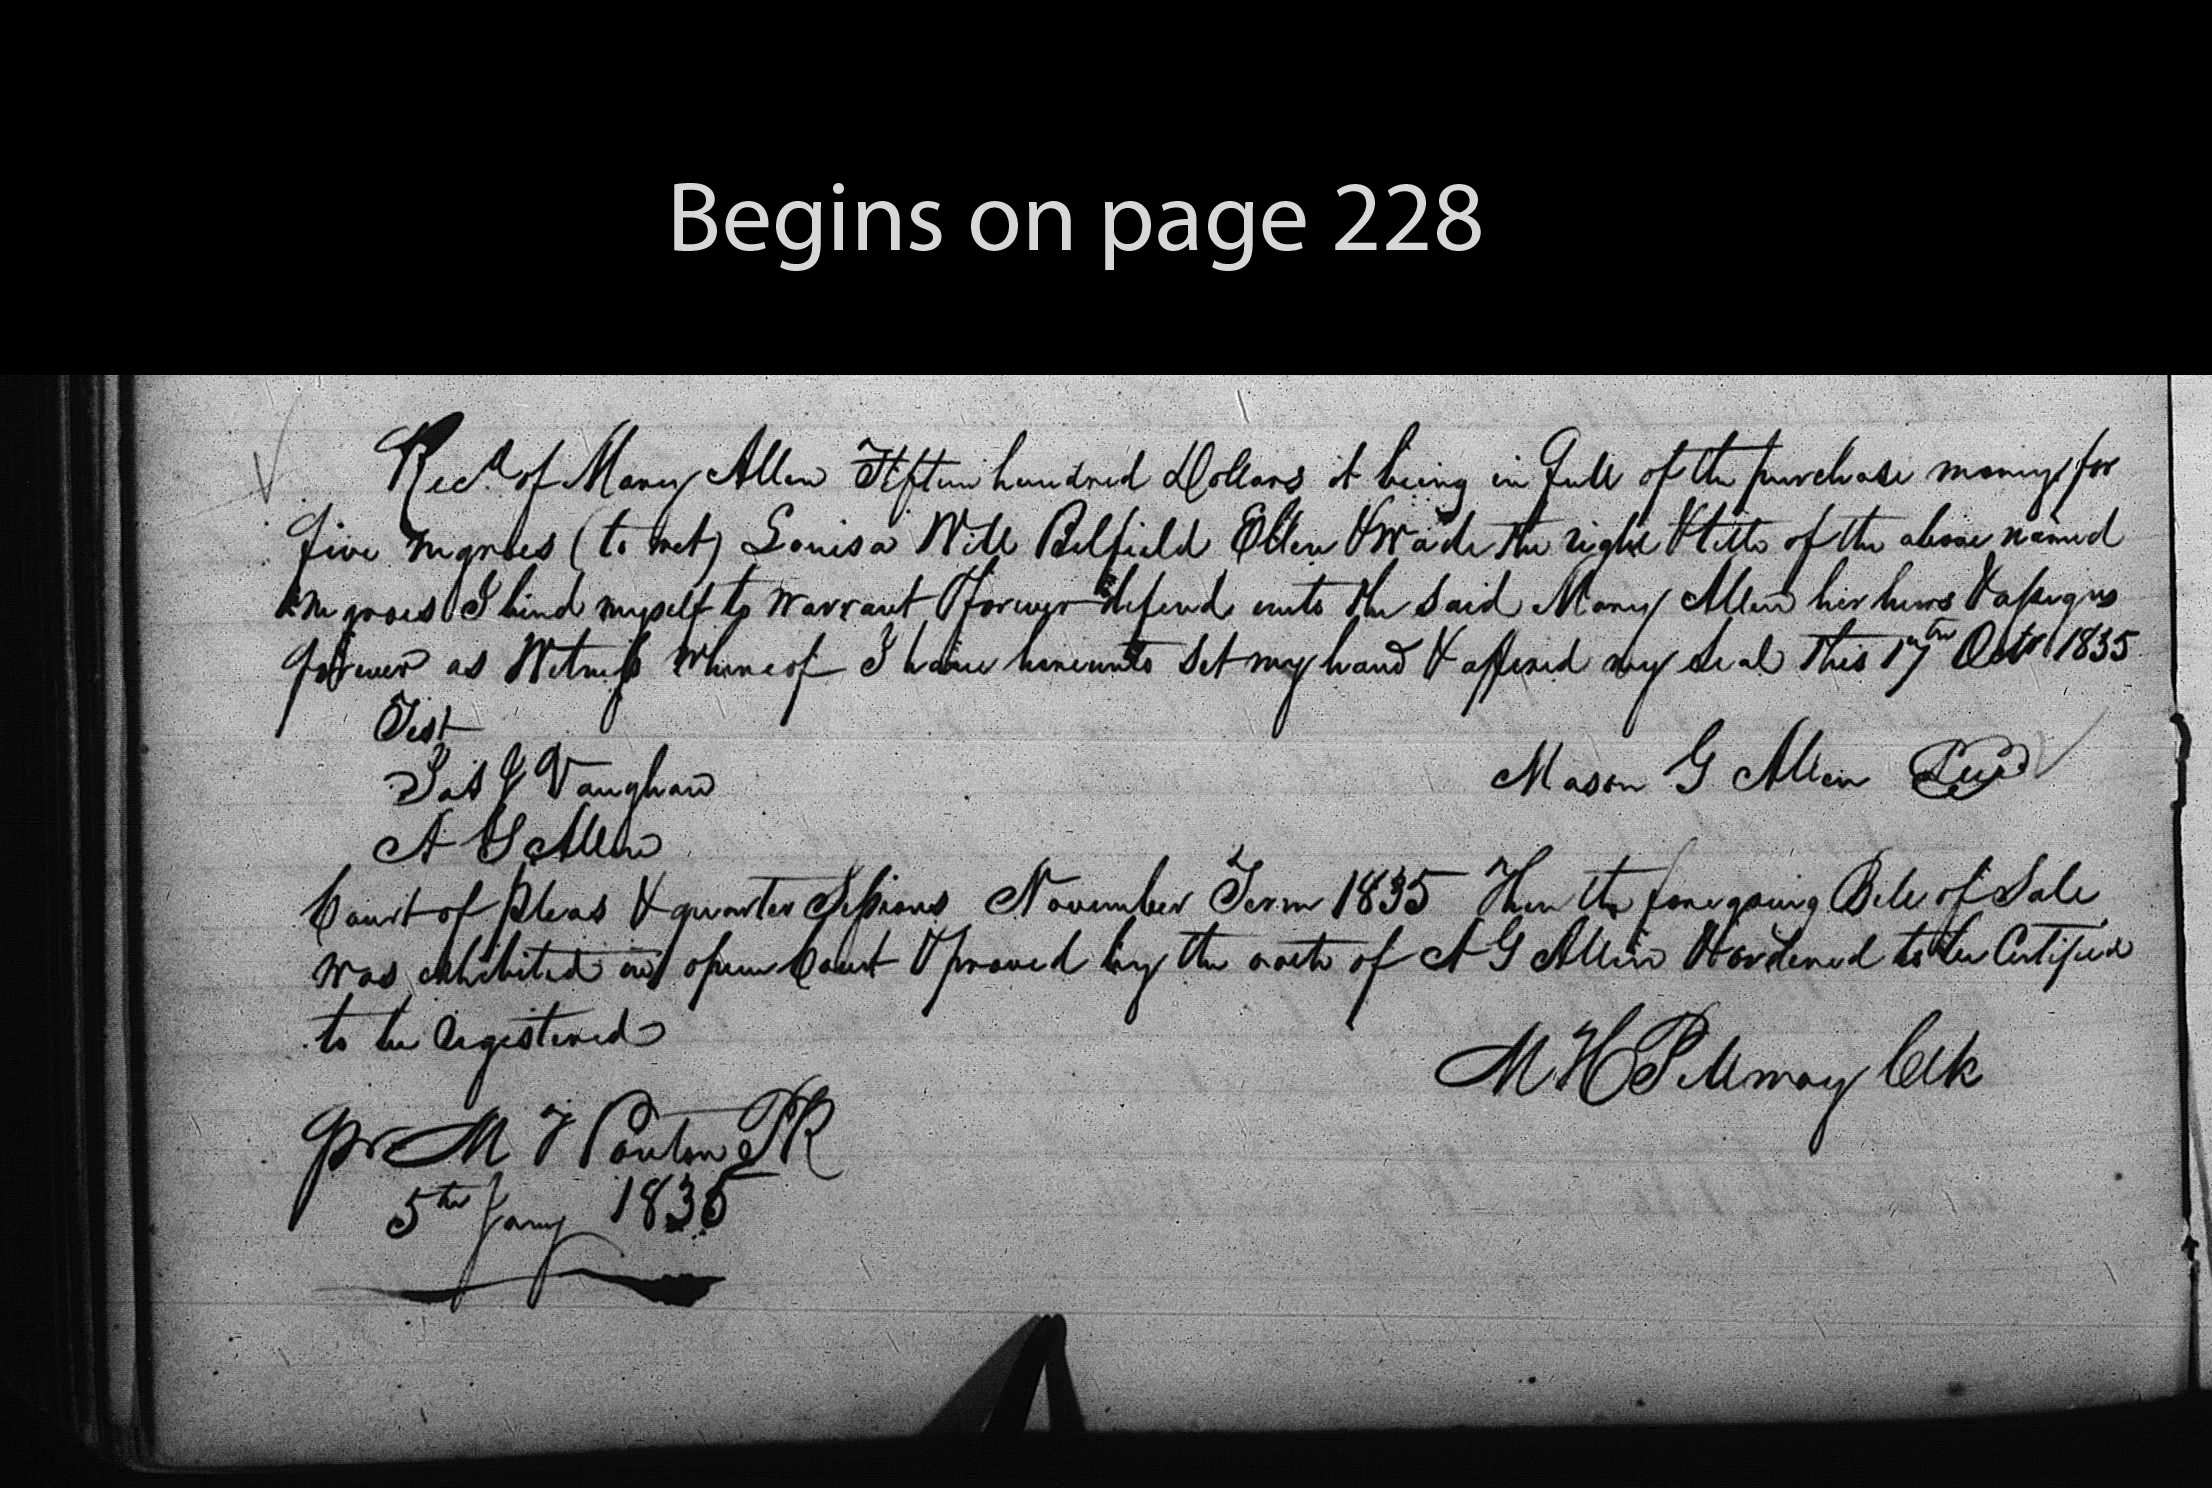 Begins on page 228
Recd. of Mary Allen Fifteen hundred Dollars it being in full of the purchase money for
five negroes (to wit) Louisa Will Belfield Ellen & Wade the right & title of the above named
negroes I bind myself to warrant & forever defend unto the said Mary Allen her heirs & assigns
forever as Witness Whereof I have hereunto set my hand & affixed my seal this 17th Octr 1835
Test
Jas J Vaughan
Mason G Allen Seal
A G Allen
Court of Pleas & quarter Sessions November Term 1835 Then the foregoing Bill of Sale
was exhibited in open Court & proved by the oath of A G Allen & ordered to be Certified
to be registered
M H Pettway Clk
pr M F Ponton PR
5th Jany 1836